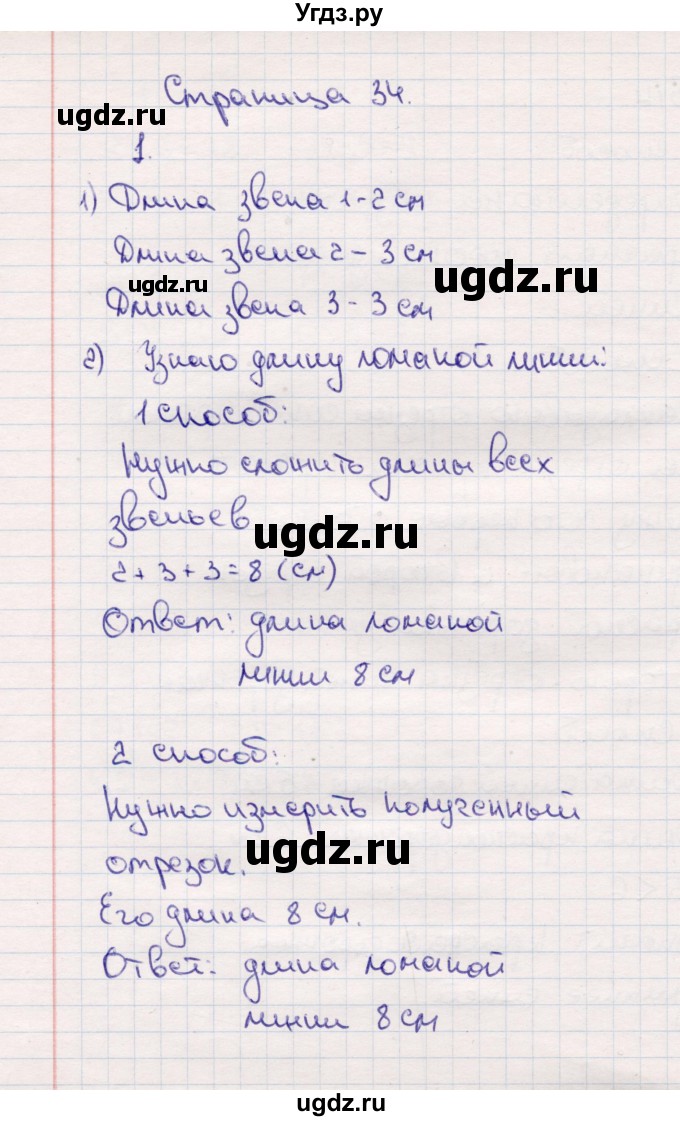 Угдз.ру
Страница 34.
ugdz.ru
1.
1) Длина звена 1 - 2 см
Длина звена 2 - 3 см
ugdz.ru
ugdz.ru
Длина звена 3 - 3 см
2) Узнаю длину ломаной линии:
1 способ:
Нужно сложить длины всех
звеньев
ugdz.ru
2 + 3 + 3 = 8 (см)
Ответ: длина ломаной
линии 8 см
2 способ:
Нужно измерить полученный
отрезок.
ugdz.ru
Его длина 8 см.
Ответ: длина ломаной
линии 8 см
ugdz.ru